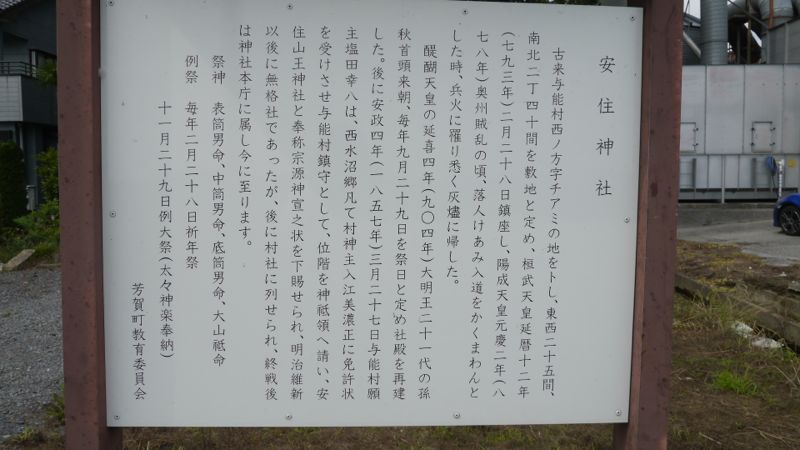 安住神社
古来与能村西ノ方字チアミの地を卜し、東西二十五間、
南北二丁四十間を敷地と定め、桓武天皇延暦十二年
(七九三年)二月二十八日鎮座し、陽成天皇元慶二年(八
七八年)奥州賊乱の頃、落人けあみ入道をかくまわんと
した時、兵火に罹り悉く灰燼に帰した。
醍醐天皇の延喜四年(九〇四年)大明王二十一代の孫
秋首頭来朝、毎年九月二十九日を祭日と定め社殿を再建
した。後に安政四年(一八五七年)三月二十七日与能村願
主塩田幸八は、西水沼郷凡て村神主入江美濃正に免許状
を受けさせ与能村鎮守として、位階を神祇領へ請い、安
住山王神社と奉称宗源神宣之状を下賜せられ、明治維新
以後に無格社であったが、後に村社に列せられ、終戦後
は神社本庁に属し今に至ります。
祭神 表筒男命、中筒男命、底筒男命、大山祇命
例祭 毎年二月二十八日祈年祭
十一月二十九日例大祭(太々神楽奉納)
芳賀町教育委員会